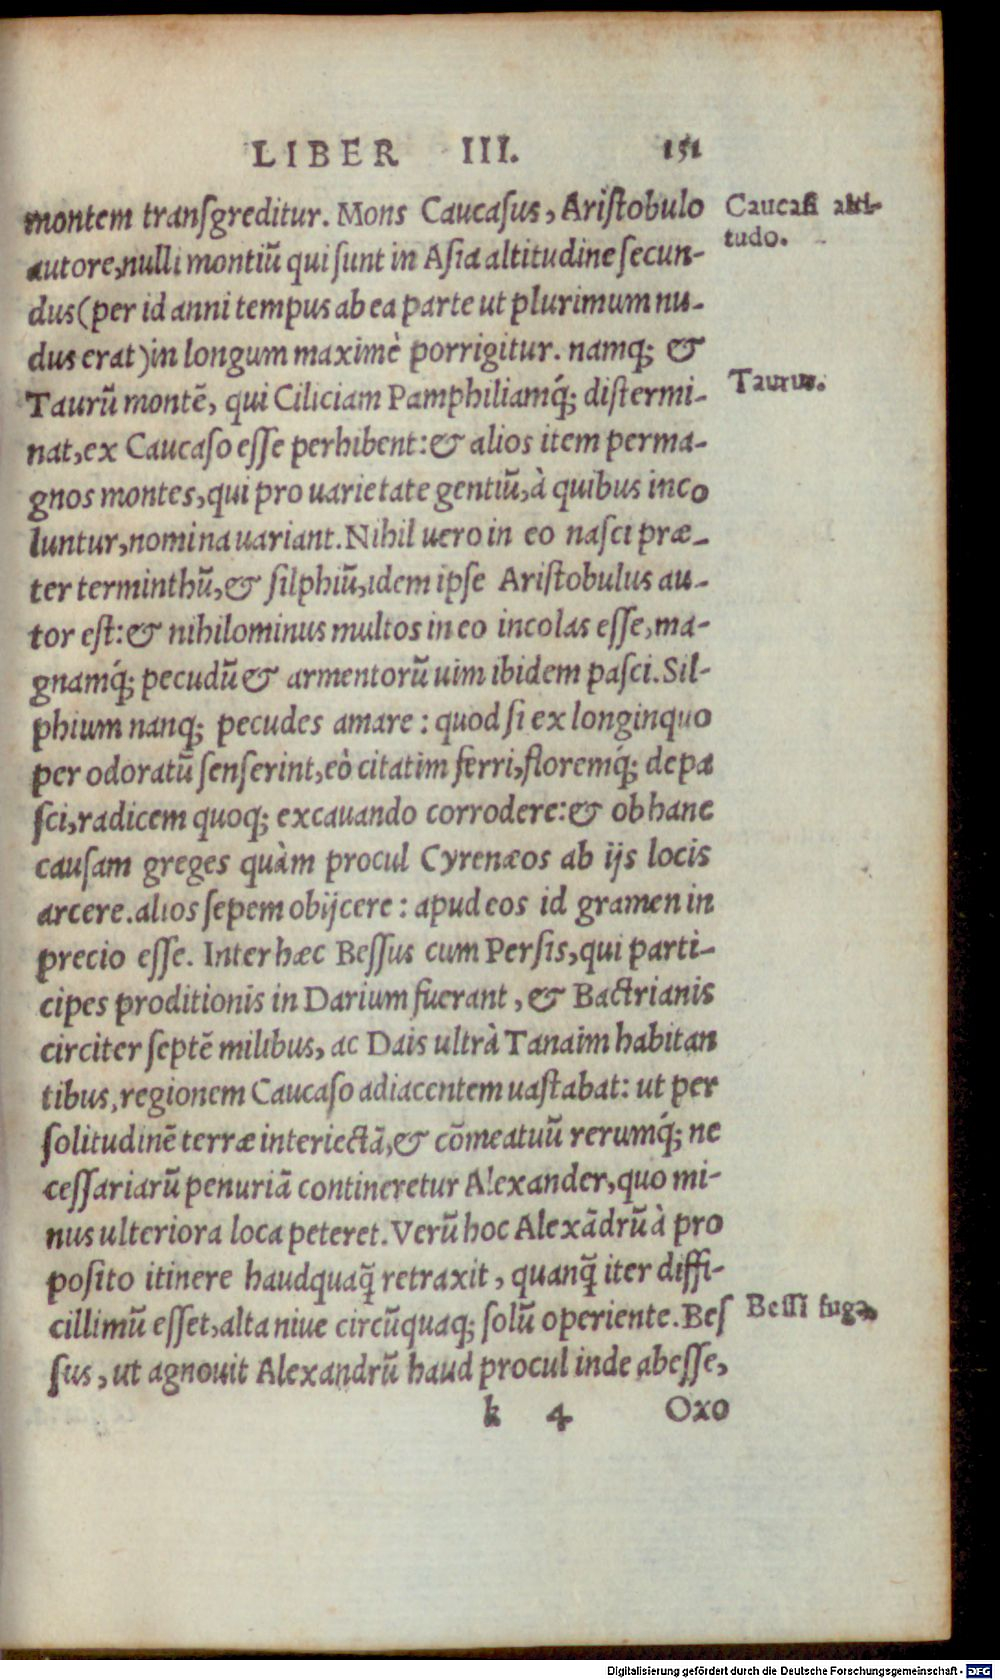 LIBER III. 151
montem transgreditur. Mons Caucasus, Aristobulo
Caucasi alti-
tudo.
autore, nulli montiũ qui sunt in Asia altitudine secun-
dus (per id anni tempus ab ea parte ut plurimum nu-
dus erat) in longum maximè porrigitur. namq; &
Taurũ montẽ, qui Ciliciam Pamphiliamq́; distermi-
Taurus.
nat, ex Caucaso esse perhibent: & alios item perma-
gnos montes, qui pro uarietate gentiũ, à quibus inco
luntur, nomina uariant. Nihil uero in eo nasci præ-
ter terminthũ, & silphiũ, idem ipse Aristobulus au-
tor est: & nihilominus multos in eo incolas esse, ma-
gnamq́; pecudũ & armentorũ uim ibidem pasci. Sil-
phium nanq; pecudes amare: quod si ex longinquo
per odoratũ senserint, eò citatim ferri, floremq́; depa
sci, radicem quoq; excauando corrodere: & ob hanc
causam greges quàm procul Cyrenæos ab ijs locis
arcere. alios sepem obijcere: apud eos id gramen in
precio esse. Inter hæc Bessus cum Persis, qui parti-
cipes proditionis in Darium fuerant, & Bactrianis
circiter septẽ milibus, ac Dais ultrà Tanaim habitan
tibus, regionem Caucaso adiacentem uastabat: ut per
solitudinẽ terræ interiectã, & cõmeatuũ rerumq́; ne
cessariarũ penuriã contineretur Alexander, quo mi-
nus ulteriora loca peteret. Verũ hoc Alexãdrũ à pro
posito itinere haudquaq̃ retraxit, quanq̃ iter diffi-
cillimũ esset, alta niue circũquaq; solũ operiente. Bes
Bessi fuga.
sus, ut agnouit Alexandrũ haud procul inde abesse,
k 4 Oxo
Digitalisierung gefördert durch die Deutsche Forschungsgemeinschaft - DFG